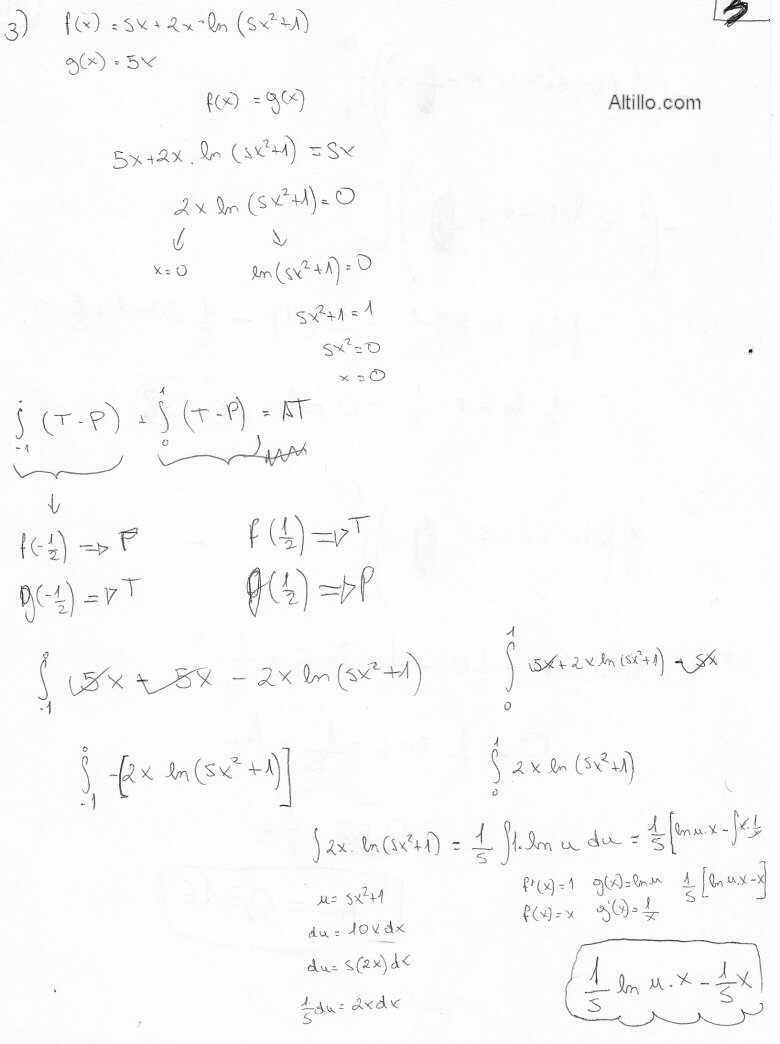 5
3) f(x) = 5x + 2x · ln (5x²+1)
g(x) = 5x
Altillo.com
f(x) = g(x)
5x+2x . ln (5x²+1) = 5x
2x ln (5x²+1) = 0
↙ ↘
x=0 ln(5x²+1)=0
5x²+1=1
5x²=0
x=0
∫₋₁⁰ (T-P) + ∫₀¹ (T-P) = AT
↓
f(-1/2) => P f(1/2) => T
g(-1/2) => T g(1/2) => P
∫₋₁⁰ 5x - 5x - 2x ln(5x²+1) ∫₀¹ 5x + 2x ln(5x²+1) - 5x
∫₋₁⁰ -[2x ln(5x²+1)] ∫₀¹ 2x ln(5x²+1)
∫2x. ln(5x²+1) = 1/5 ∫1. ln u du = 1/5 [ln u.x - ∫x.1/x
u = 5x²+1 f'(x)=1 g(x)=ln u 1/5 [ln u.x - x]
du = 10x dx f(x)=x g'(x)=1/x
du = 5(2x)dx
1/5 du = 2x dx
1/5 ln u . x - 1/5 x